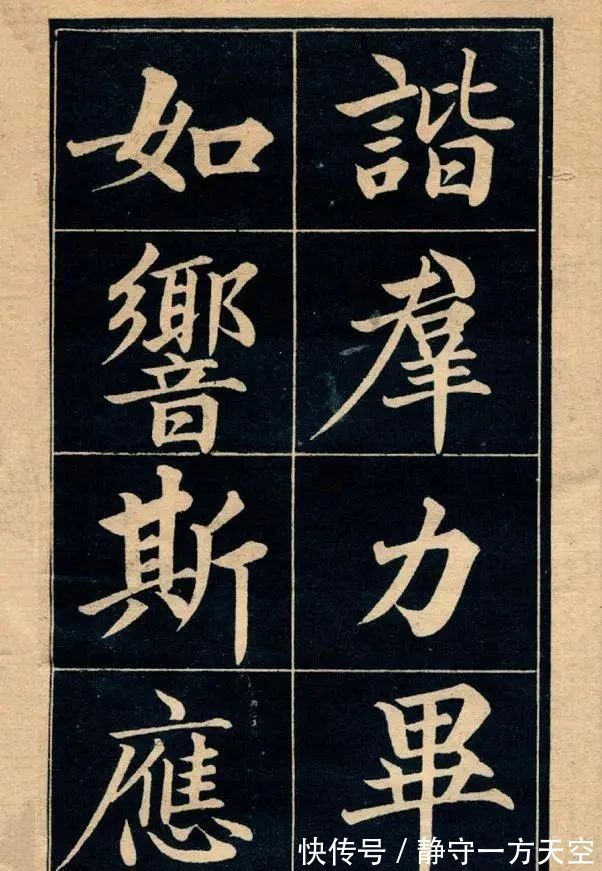 諧羣力畢
如響斯應
快传号 / 静守一方天空